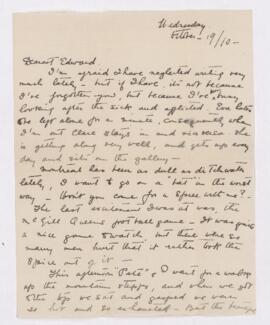 Wednesday
October 19/10 —
Dearest Edward.
I'm afraid I have neglected writing very
much lately — but if I have, it's not because
I've forgotten you, but because I've been busy
looking after the sick and afflicted. Eva
be left alone for a minute, consequently when
I'm out Clare stays in and vice versa. She
is getting along very well, and gets up every
day and sits on the gallery —
Montreal has been as dull as ditchwater
lately, I want to go on a "bat" in the worst
way — Won't you come for a spree with me?
The last excitement I was at was the
McGill Queens football game — It was quite
a nice game to watch but there were so
many men hurt that it rather took the
spice out of it —
This afternoon "Pats" & I went for a walk
up the mountain steps, and when we got
to the top we sat and gasped we were
so hot and so exhausted — But the